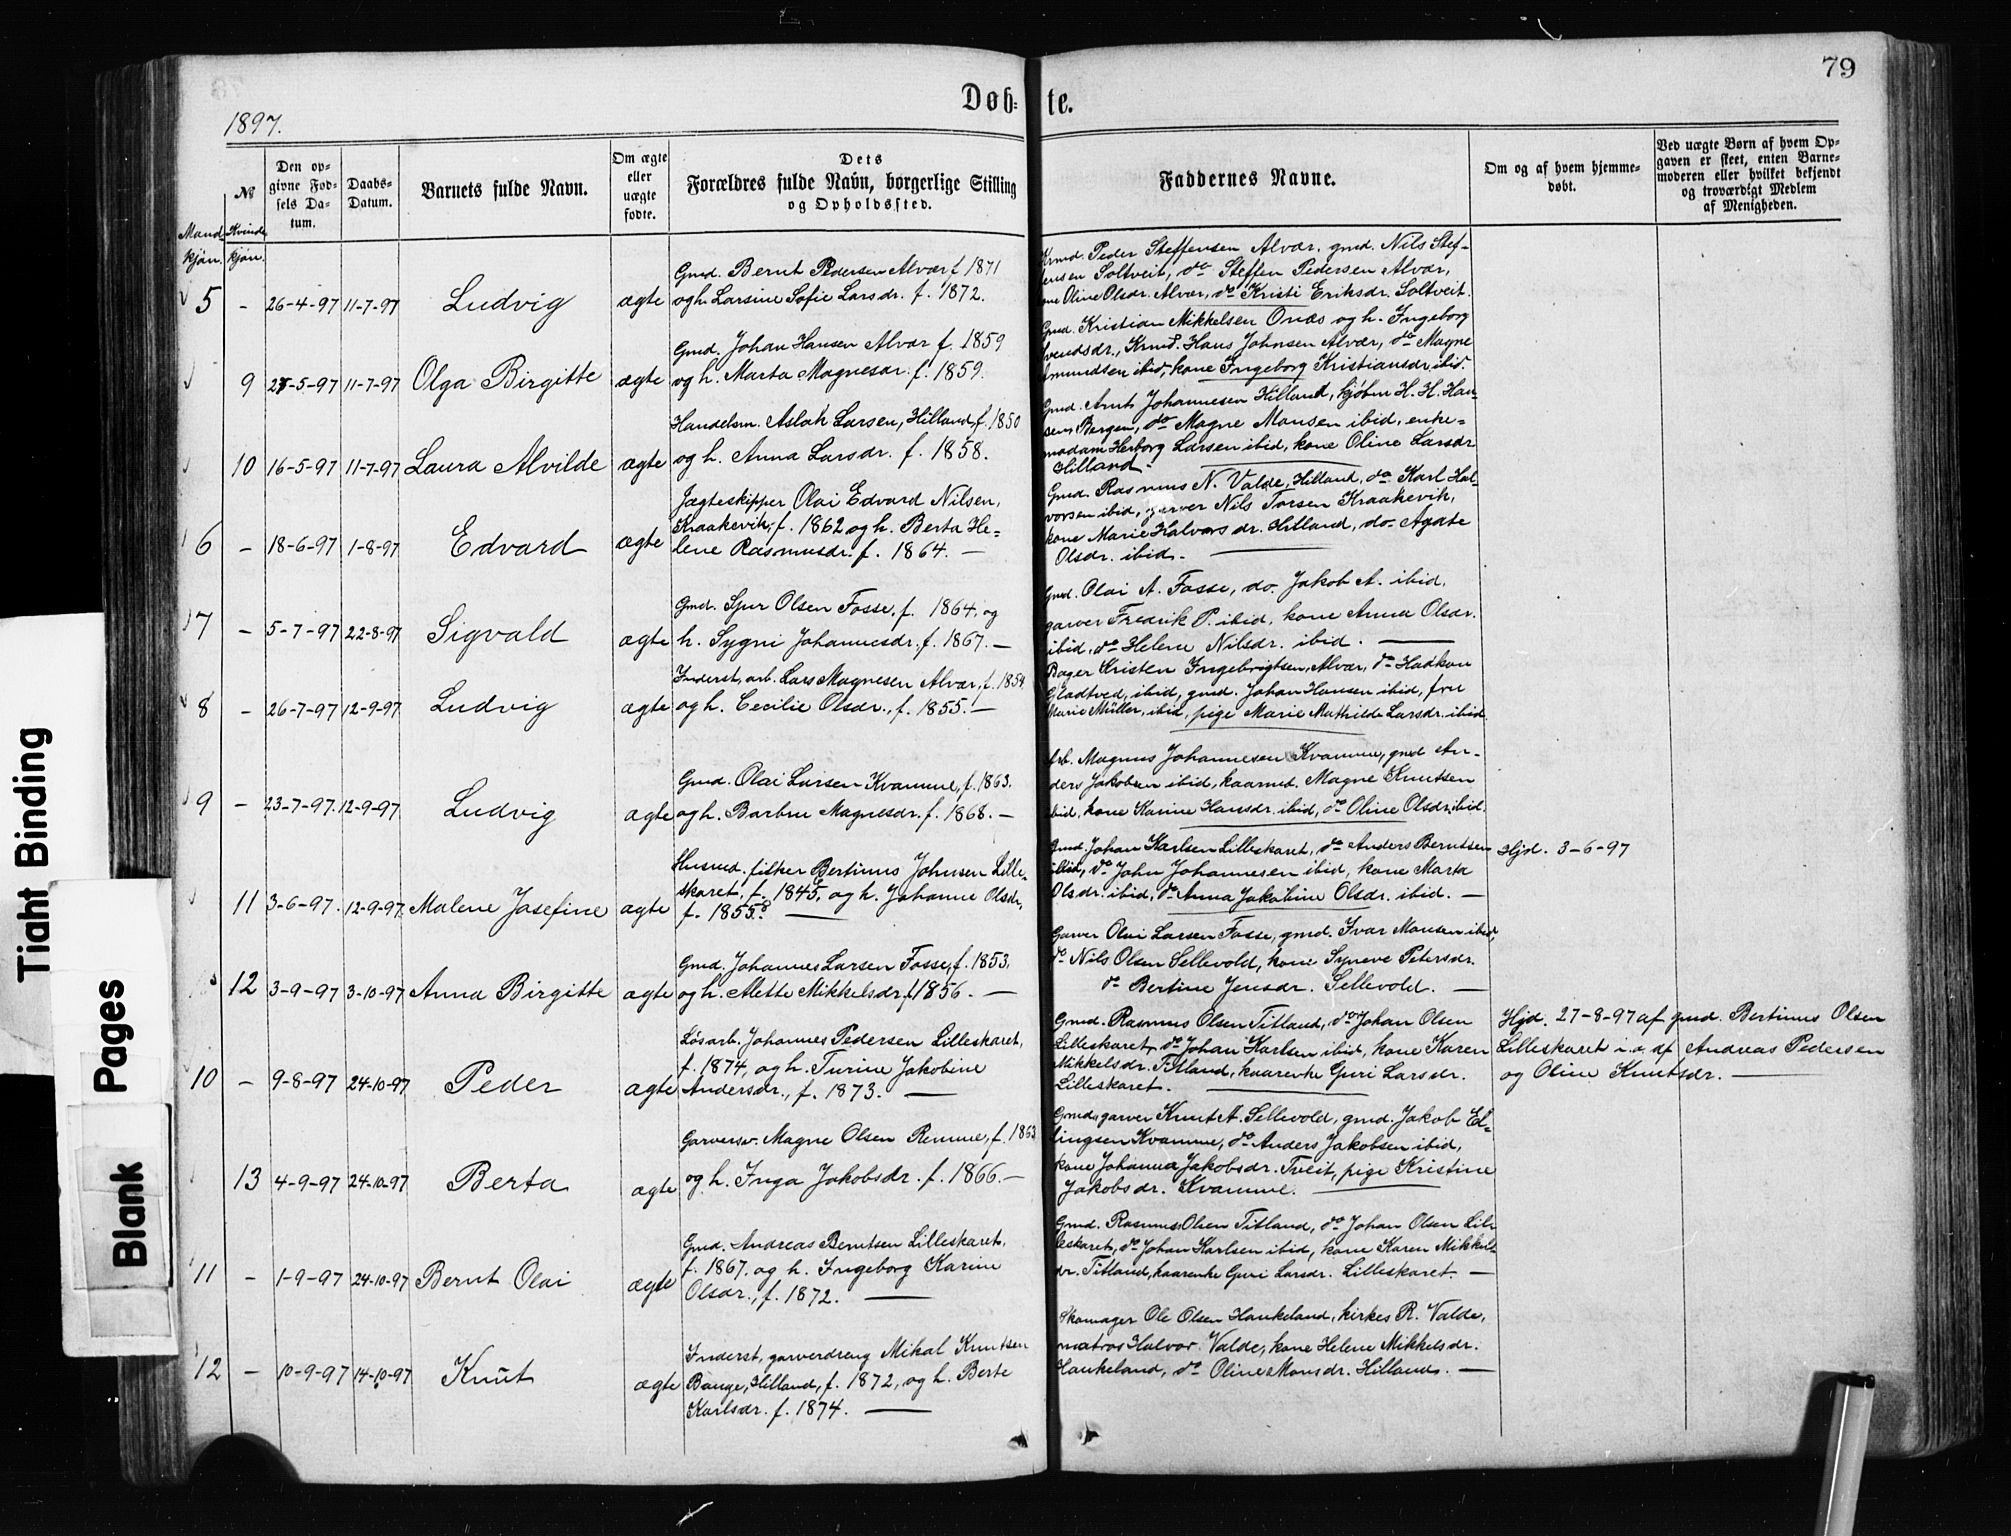 79
Døb-
te.
1897.
№
Den op-
givne Fød-
sels Da-
tum.
Daabs-
Datum.
Barnets fulde Navn.
Om ægte
eller
uægte
fødte.
Dets
Forældres fulde Navn, borgerlige Stilling
og Opholdssted.
Faddernes Navne.
Om og af hvem hjemme-
døbt.
Ved uægte Børn af hvem Op-
gaven er skeet, enten Barne-
moderen eller hvilket bekjendt
og troværdigt Medlem
af Menigheden.
Mand
kjøn.
Kvinde
kjøn.
5 - 26-4-97 11-7-97 Ludvig ægte
Gmd. Bernt Pedersen Alvær f. 1871
og h. Larsine Sofie Larsdr. f. 1872.
Peder Steffensen Alvær, gmd. Nils Stef-
fensen Soltveit, do Steffen Pedersen Alvær,
kone Oline Olsdr. Alvær, do Kristi Eriksdr. Soltveit.
9 -5-97 11-7-97 Olga Birgitte ægte
Gmd. Johan Hansen Alvær f. 1859
og h. Marta Magnesdr. f. 1859.
Gmd. Kristian Mikkelsen Onæs og h. Ingeborg
Hans Johnsen Alvær, do Magne
Amundsen ibid, kone Ingeborg Kristiansdr. ibid.
10 16-5-97 11-7-97 Laura Alvilde ægte
Handelsm. Aslak Larsen, Hilland, f. 1850
og h. Anna Larsdr. f. 1858.
Gmd. Arnt Johannesen Hilland, kjøbm H. H. Han-
sen, Bergen, do Magne Monsen ibid, enke-
madam Herborg Larsen ibid, kone Oline Larsdr
Hilland.
6 - 18-6-97 1-8-97 Edvard ægte
Jægteskipper Olai Edvard Nilsen,
Kraakevik, f. 1862 og h. Berta He-
lene Rasmusdr. f. 1864. —
Gmd. Rasmus N. Valde, Hilland, do Karl Hal-
vorsen ibid, garver Nils Torsen Kraakevik,
kone Marie Halvorsdr. Hilland, do. Agate
Olsdr. ibid.
7 - 5-7-97 22-8-97 Sigvald ægte
Gmd. Sjur Olsen Fosse, f. 1864, og
h. Sygni Johannesdr. f. 1867. —
Gmd. Olai A. Fosse, do. Jakob A. ibid,
garver Fredrik P. ibid, kone Anna Olsdr.
ibid, do Helene Nilsdr. ibid.
8 - 26-7-97 12-9-97 Ludvig ægte
Inderst, arb. Lars Magnesen Alvær, f. 1854
og h. Cecilie Olsdr., f. 1855. —
Bager Kristen Ingebrigtsen, Alvær, do Haakon
Gladtved, ibid, gmd. Johan Hansen ibid, fru
Marie Müller, ibid, pige Marie Mathilde Larsdr. ibid.
9 - 23-7-97. 12-9-97 Ludvig ægte
Gmd. Olai Larsen Kvamme, f. 1863.
og h. Barbru Magnesdr. f. 1868. —
Arb. Magnus Johannesen Kvamme, gmd An-
ders Jakobsen ibid, kaarmd. Magne Knutsen
ibid, kone Karine Hansdr. ibid, do Oline Olsdr. ibid.
11 3-6-97. 12-9-97. Malene Josefine ægte
Husmd. fisker Bertinus Johnsen Lille-
skaret, f. 1845, og h. Johanne Olsdr,
f. 1855.
Gmd. Johan Karlsen Lilleskaret, do Anders Berntsen
ibid, do John Johannesen ibid, kone Marta
Olsdr. ibid, do Anna Jakobine Olsdr. ibid. —
Hjd. 3-6-97
12 3-9-97 3-10-97 Anna Birgitte ægte
Gmd. Johannes Larsen Fosse, f. 1853,
og h. Alette Mikkelsdr. f. 1856. —
Garver Olai Larsen Fosse, gmd. Ivar Monsen ibid,
do Nils Olsen Sellevold, kone Syneve Petersdr.
do Bertine Jensdr. Sellevold. —
10 - 9-8-97 24-10-97 Peder ægte
Løsarb. Johannes Pedersen Lilleskaret,
f. 1874, og h. Turine Jakobine
Andersdr., f. 1873. —
Gmd. Rasmus Olsen Titland, do Johan Olsen
Lilleskaret, do Johan Karlsen ibid, kone Karen
Mikkelsdr. Titland, kaarenke Guri Larsdr.
Lilleskaret.
Hjd. 27-8-97 af gmd. Bertinus Olsen
Lilleskaret i. o. af Andreas Pedersen
og Oline Knutsdr. —
13 4-9-97 24-10-97 Berta ægte
Garversv. Magne Olsen Remme, f. 1863
og h. Inga Jakobsdr. f. 1866. —
Gmd. garver Knut A. Sellevold, gmd. Jakob El-
lingsen Kvamme, do Anders Jakobsen ibid,
kone Johanna Jakobsdr. Tveit, pige Kristine
Jakobsdr. Kvamme.
11 - 1-9-97 24-10-97 Bernt Olai ægte
Gmd. Andreas Berntsen Lilleskaret,
f. 1867, og h. Ingeborg Karine
Olsdr., f. 1872. —
Gmd. Rasmus Olsen Titland, do Johan Olsen Lil-
leskaret, do Johan Karlsen ibid, kone Karen Mikkels-
dr. Titland, kaarenke Guri Larsdr. Lilleskaret. —
12 - 10-9-97 14-10-97 Knut ægte
Inderst, garverdreng Mikal Knutsen
Bauge, Hilland, f. 1872, og h. Berte
Karlsdr. f. 1874. —
Skomager Ole Olsen Haukeland, kirkes R. Valde,
matros Halvor Valde, kone Helene Mikkelsdr.
Haukeland, do Oline Monsdr. Hilland. —
Tight Binding
Blank Pages